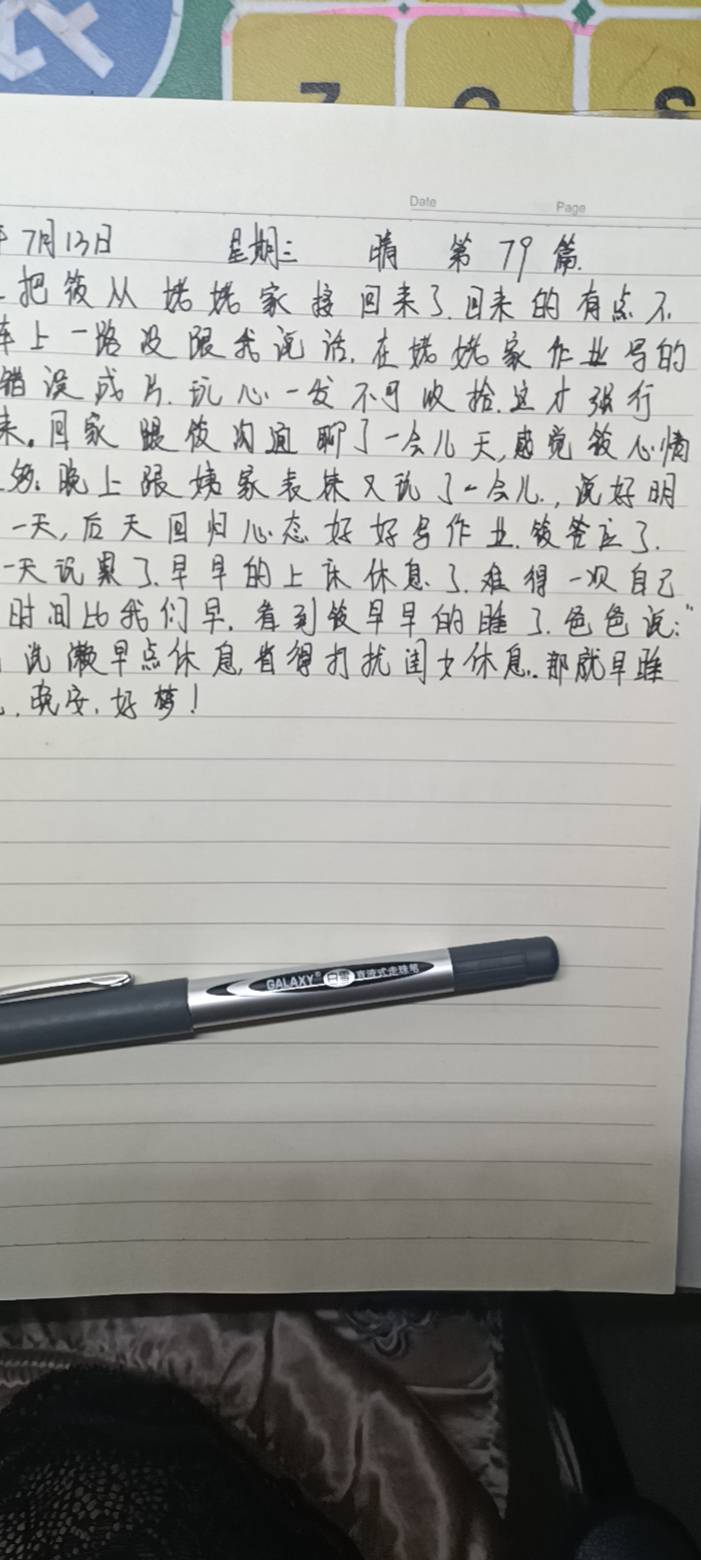 Z G S
Date Page
年7月13日 星期三 晴 第79篇.
把筱从姥姥家接回来了.回来的有点不
车上一路没跟我说话.在姥姥家作业写的
错没成片.玩心一发不可收拾.这才强行
来。回家跟筱沟通聊了一会儿天,感觉筱心情
多。晚上跟姨家表妹又玩了一会儿.,说好明
一天,后天回归心态好好写作业.筱答应了.
一天玩累了.早早的上床休息了.难得一次自己
时间比我们早.看到筱早早的睡了.爸爸说:"
说 早点休息,省得打扰闺女休息.那就早睡
.晚安.好梦!
GALAXY® 白雪 直液式走珠笔